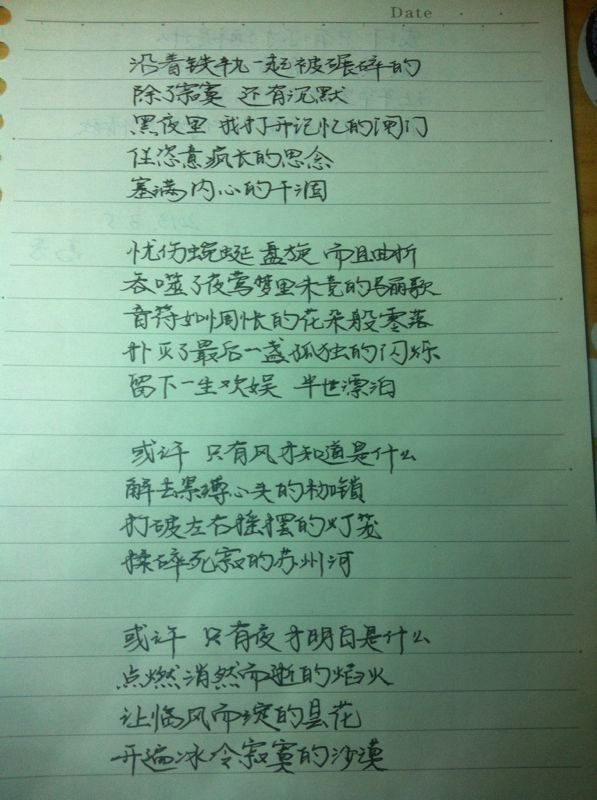 Date
沿着铁轨一起被碾碎的
除了寂寞 还有沉默
黑夜里 我打开记忆的闸门
任恣意疯长的思念
塞满内心的干涸
忧伤蜿蜒 盘旋 而且曲折
吞噬了夜莺梦里未竟的玛丽歌
音符如惆怅的花朵般零落
扑灭了最后一盏孤独的闪烁
留下一生欢娱 半世漂泊
或许 只有风才知道是什么
解去禁缚心头的枷锁
打破左右摇摆的灯笼
揉碎死寂的苏州河
或许 只有夜才明白是什么
点燃消然而逝的焰火
让临风而绽的昙花
开遍冰冷寂寞的沙漠